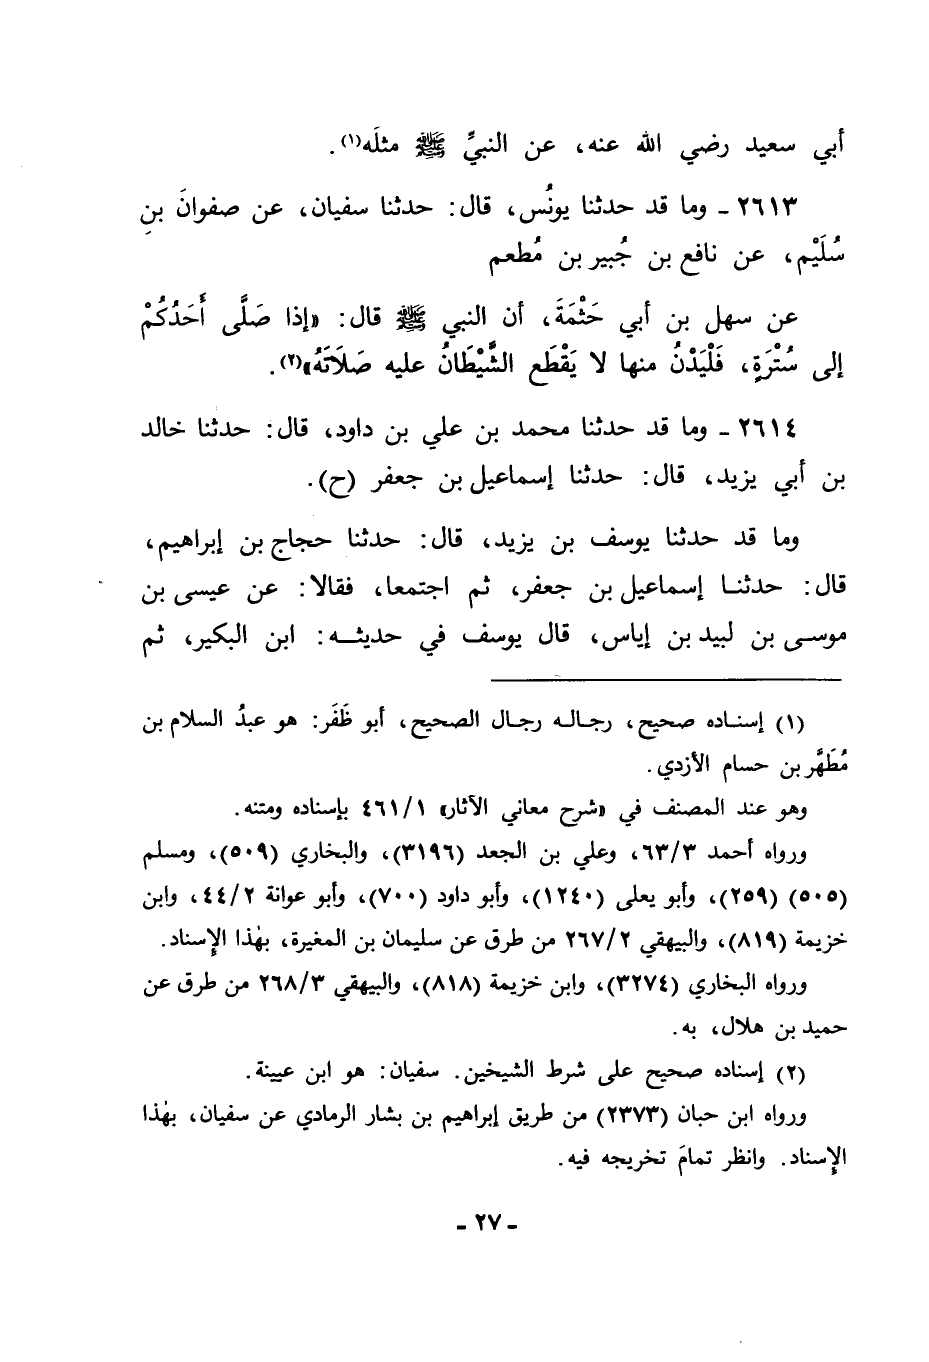 أبي سعيد رضي الله عنه، عن النبيِّ ﷺ مثلَه(١).
٢٦١٣ ـ وما قد حدثنا يونُس، قال: حدثنا سفيان، عن صفوانَ بنِ
سُلَيْم، عن نافع بن جُبير بن مُطعم
عن سهل بن أبي حَثْمَةَ، أن النبي ﷺ قال: «إذا صَلَّى أَحَدُكُمْ
إلى سُتْرَةٍ، فَلْيَدْنُ منها لا يَقْطَع الشَّيْطَانُ عليه صَلَاتَهُ»(٢).
٢٦١٤ ـ وما قد حدثنا محمد بن علي بن داود، قال: حدثنا خالد
بن أبي يزيد، قال: حدثنا إسماعيل بن جعفر (ح).
وما قد حدثنا يوسف بن يزيد، قال: حدثنا حجاج بن إبراهيم،
قال: حدثنا إسماعيل بن جعفر، ثم اجتمعا، فقالا: عن عيسى بن
موسى بن لبيد بن إياس، قال يوسف في حديثه: ابن البكير، ثم
(١) إسناده صحيح، رجاله رجال الصحيح، أبو ظَفَر: هو عبدُ السلام بن
مُطَهَّر بن حسام الأزدي.
وهو عند المصنف في «شرح معاني الآثار» ٤٦١/١ بإسناده ومتنه.
ورواه أحمد ٦٣/٣، وعلي بن الجعد (٣١٩٦)، والبخاري (٥٠٩)، ومسلم
(٥٠٥) (٢٥٩)، وأبو يعلى (١٢٤٠)، وأبو داود (٧٠٠)، وأبو عوانة ٤٤/٢، وابن
خزيمة (٨١٩)، والبيهقي ٢٦٧/٢ من طرق عن سليمان بن المغيرة، بهٰذا الإِسناد.
ورواه البخاري (٣٢٧٤)، وابن خزيمة (٨١٨)، والبيهقي ٢٦٨/٣ من طرق عن
حميد بن هلال، به.
(٢) إسناده صحيح على شرط الشيخين. سفيان: هو ابن عيينة.
ورواه ابن حبان (٢٣٧٣) من طريق إبراهيم بن بشار الرمادي عن سفيان، بهٰذا
الإِسناد. وانظر تمامَ تخريجه فيه.
ـ ٢٧ ـ